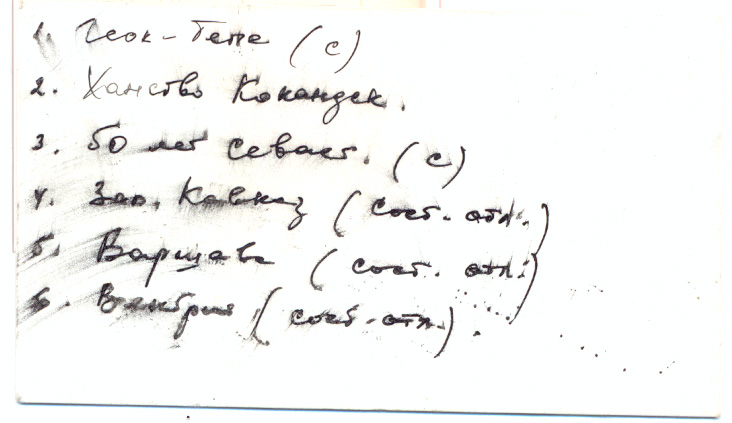 1. Геок-Тепе (с)
2. Ханство Кокандск.
3. 50 лет Севаст. (с)
4. Зап. Кавказ (сост. отл.)
5. Варшава (сост. отл.)
6. Венгрия (сост. отл.).